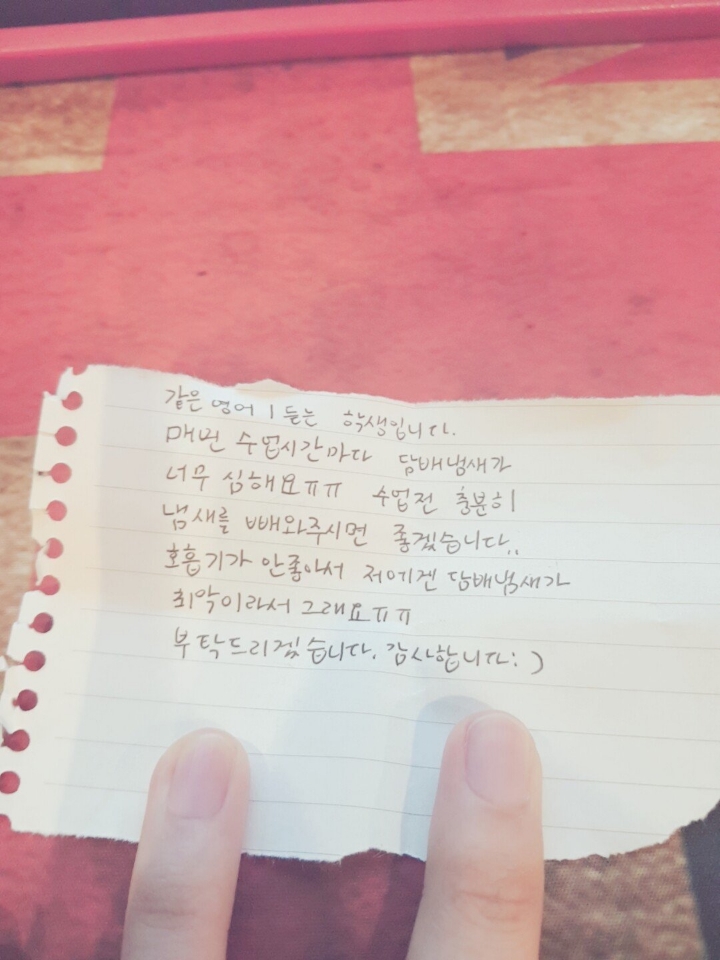 같은 영어 1 듣는 학생입니다.
매번 수업시간마다 담배냄새가
너무 심해요ㅠㅠ 수업전 충분히
냄새를 빼와주시면 좋겠습니다..
호흡기가 안좋아서 저에겐 담배냄새가
최악이라서 그래요ㅠㅠ
부탁드리겠습니다. 감사합니다:)